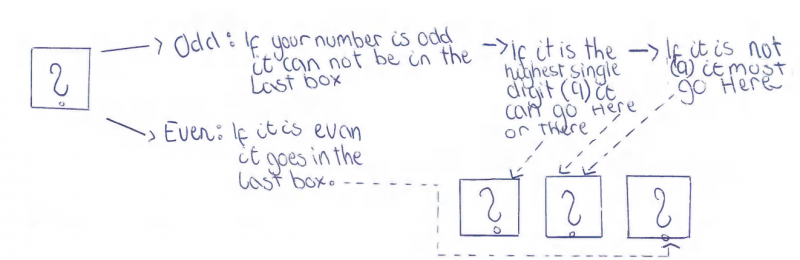 ?
Odd: If your number is odd
it can not be in the
Last box
If it is the
highest single
digit (9) it
can go Here
or there
If it is not
(9) it must
go Here
Even: If it is evan
it goes in the
Last box.
? ? ?